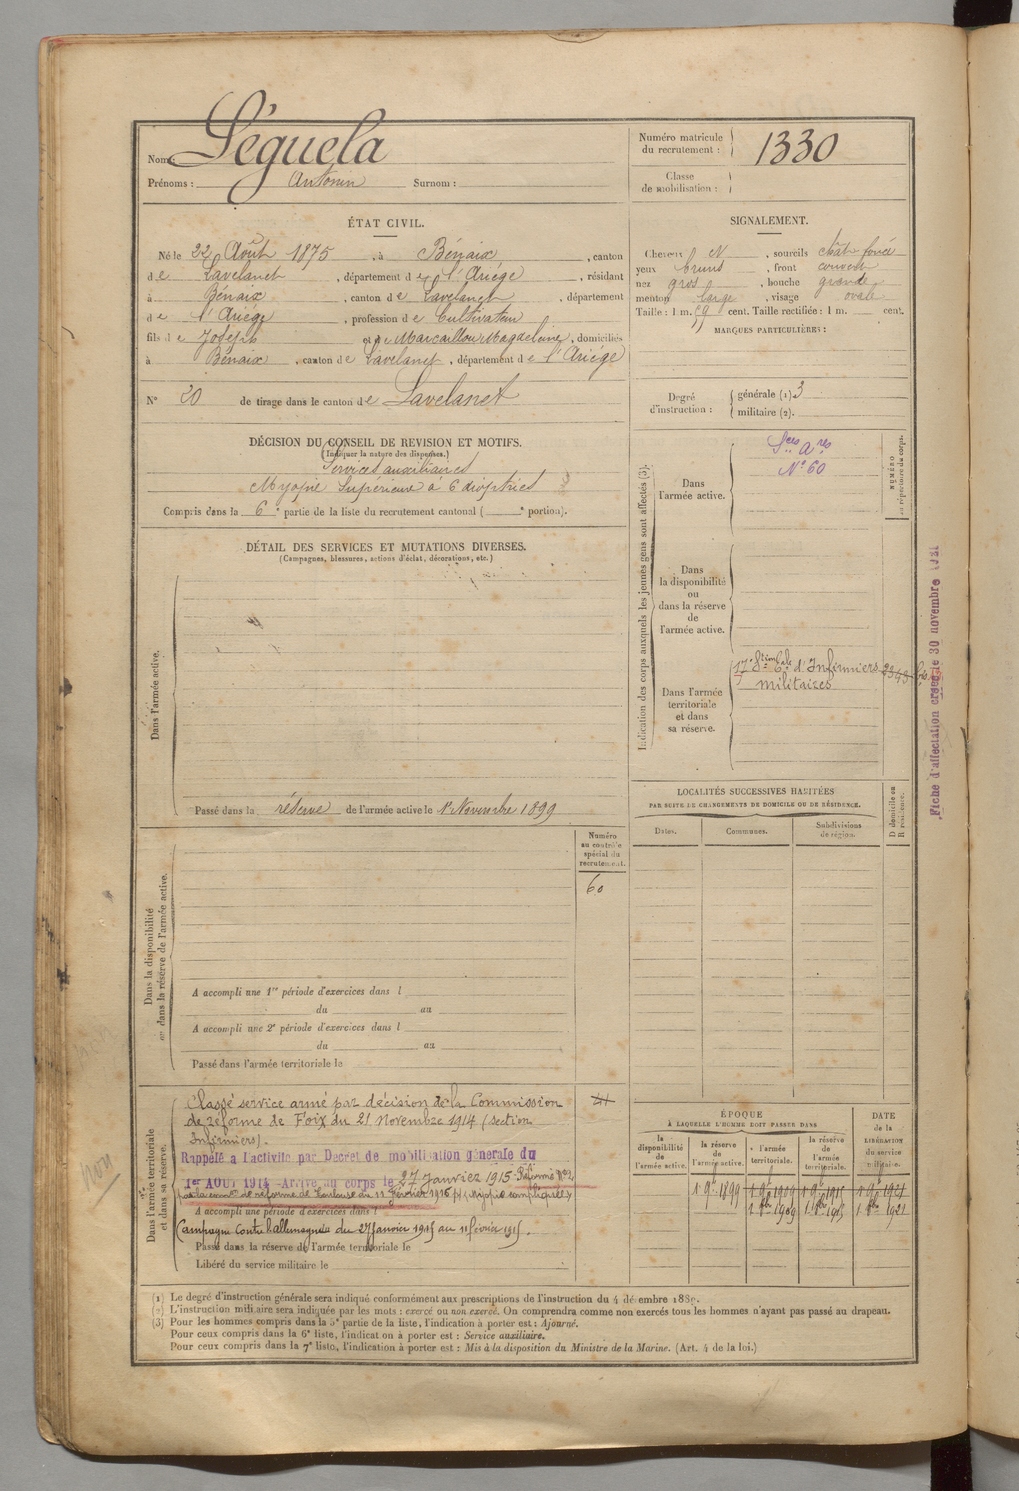 Nom : Séguela
Prénoms : Antonin Surnom :
Numéro matricule du recrutement : 1330
Classe de mobilisation :
ÉTAT CIVIL.
Né le 22 Août 1875, à Bénaix, canton
de Lavelanet, département de l'Ariége, résidant
à Bénaix, canton de Lavelanet, département
de l'Ariége, profession de Cultivateur
fils de Joseph et de Marcaillou Magdeleine, domiciliés
à Bénaix, canton de Lavelanet, département de l'Ariége
N° 20 de tirage dans le canton de Lavelanet
SIGNALEMENT.
Cheveux N, sourcils chât foncé
yeux bruns, front couvert
nez gros, bouche grande
menton large, visage ovale
Taille : 1 m. 59 cent. Taille rectifiée : 1 m. cent.
MARQUES PARTICULIÈRES :
Degré d'instruction : générale (1) 3
militaire (2).
DÉCISION DU CONSEIL DE REVISION ET MOTIFS.
(Indiquer la nature des dispenses.)
Services auxiliaires
Myopie Supérieure à 6 dioptries
Compris dans la 6e partie de la liste du recrutement cantonal ( e portion).
DÉTAIL DES SERVICES ET MUTATIONS DIVERSES.
(Campagnes, blessures, actions d'éclat, décorations, etc.)
Dans l'armée active.
Passé dans la réserve de l'armée active le 1er Novembre 1899
Indication des corps auxquels les jeunes gens sont affectés (3).
NUMÉRO au répertoire du corps.
Dans l'armée active.
Sces Ares
N° 60
Dans la disponibilité ou dans la réserve de l'armée active.
Dans l'armée territoriale et dans sa réserve.
17e d'Infirmiers
militaires
Fiche d'affectation créée le 30 novembre 1921
LOCALITÉS SUCCESSIVES HABITÉES
PAR SUITE DE CHANGEMENTS DE DOMICILE OU DE RÉSIDENCE.
Dates. Communes. Subdivisions de région. D domicile ou R résidence.
Numéro au contrôle spécial du recrutement.
60
Dans la disponibilité ou dans la réserve de l'armée active.
A accompli une 1re période d'exercices dans l
du au
A accompli une 2e période d'exercices dans l
du au
Passé dans l'armée territoriale le
Dans l'armée territoriale et dans sa réserve.
Classé service armé par décision de la Commission
de réforme de Foix du 21 Novembre 1914 (section
Infirmiers).
Rappelé à l'activité par Décret de mobilisation générale du
1er AOUT 1914 - Arrivé au corps le 27 Janvier 1915. Réformé N°2
par la comon de réforme de Toulouse du 11 février 1915 p. (myopie compliquée)
A accompli une période d'exercices dans l
Campagne contre l'allemagne du 27 Janvier 1915 au 11 février 1915.
Passé dans la réserve de l'armée territoriale le
Libéré du service militaire le
Non
ÉPOQUE
À LAQUELLE L'HOMME DOIT PASSER DANS
la disponibilité de l'armée active. la réserve de l'armée active. l'armée territoriale. la réserve de l'armée territoriale.
DATE de la LIBÉRATION du service militaire.
1 9bre 1899 1 9bre 1909 1 9bre 1915 1 9bre 1921
1 8bre 1909 1 8bre 1915 1 8bre 1921
(1) Le degré d'instruction générale sera indiqué conformément aux prescriptions de l'instruction du 4 décembre 1889.
(2) L'instruction militaire sera indiquée par les mots : exercé ou non exercé. On comprendra comme non exercés tous les hommes n'ayant pas passé au drapeau.
(3) Pour les hommes compris dans la 5e partie de la liste, l'indication à porter est : Ajourné.
Pour ceux compris dans la 6e liste, l'indication à porter est : Service auxiliaire.
Pour ceux compris dans la 7e liste, l'indication à porter est : Mis à la disposition du Ministre de la Marine. (Art. 4 de la loi.)